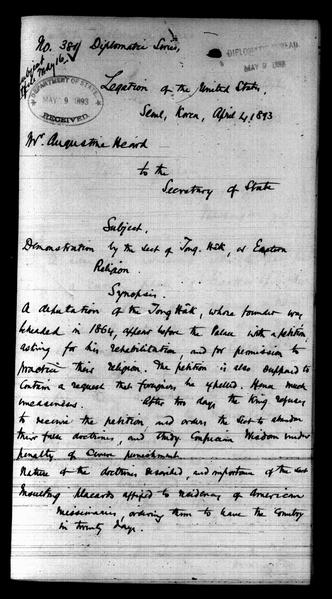 No. 380 Diplomatic Series,
DIPLOMATIC BUREAU
MAY 9 1893
May 16.
DEPARTMENT OF STATE
MAY 9 1893
RECEIVED
Legation of the United States,
Seoul, Korea, April 4, 1893
Mr. Augustine Heard
to the
Secretary of State
Subject.
Demonstration by the Sect of Tong Hak, or Eastern
Religion.
Synopsis.
A deputation of the Tong Hak, whose founder was
beheaded in 1864, appear before the Palace with a petition
asking for his rehabilitation and for permission to
practice their religion. The petition is also supposed to
contain a request that foreigners be expelled. Hence much
uneasiness. After two days the King refuses
to receive the petition, and orders the Sect to abandon
their false doctrines, and study Confucian Wisdom under
penalty of severe punishment.
Nature of the doctrines described, and importance of the Sect
Insulting placards affixed to residences of American
missionaries, ordering them to leave the Country
in twenty days.